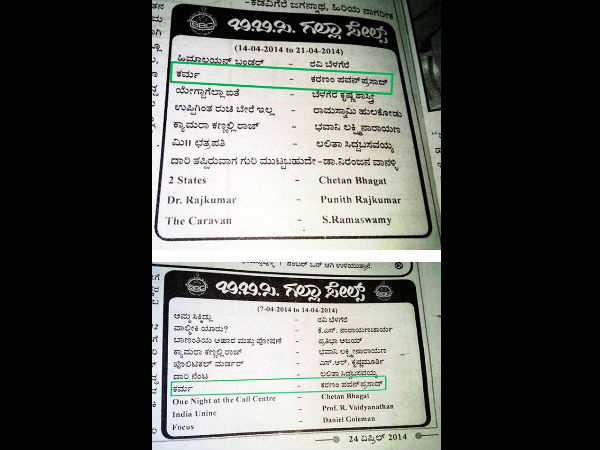 -ಕಡವಿಗೆರೆ ಜಗನ್ನಾಥ, ಹಿರಿಯ ನಾಗರೀಕ
BBC
ಬಿ.ಬಿ.ಸಿ. ಗಲ್ಲಾ ಸೇಲ್ಸ್
(14-04-2014 to 21-04-2014)
ಹಿಮಾಲಯನ್ ಬ್ಲಂಡರ್ - ರವಿ ಬೆಳಗೆರೆ
ಕರ್ಮ - ಕರಣಂ ಪವನ್ ಪ್ರಸಾದ್
ಯೇಗ್ದಾಗೆಲ್ಲಾ ಐತೆ - ಬೆಳಗೆರೆ ಕೃಷ್ಣಶಾಸ್ತ್ರಿ
ಉಪ್ಪಿಗಿಂತ ರುಚಿ ಬೇರೆ ಇಲ್ಲ - ರಾಮಸ್ವಾಮಿ ಹುಲಕೋಡು
ಕ್ಯಾಮರಾ ಕಣ್ಣಲ್ಲಿ ರಾಜ್ - ಭವಾನಿ ಲಕ್ಷ್ಮೀನಾರಾಯಣ
ಮಿ|| ಛತ್ರಪತಿ - ಲಲಿತಾ ಸಿದ್ದಬಸವಯ್ಯ
ದಾರಿ ತಪ್ಪಿರುವಾಗ ಗುರಿ ಮುಟ್ಟಬಹುದೇ -ಡಾ.ನಿರಂಜನ ವಾನಳ್ಳಿ
2 States - Chetan Bhagat
Dr. Rajkumar - Punith Rajkumar
The Caravan - S.Ramaswamy
ನಂಬರ್ ಒನ್ ಆಗಿ ಉಳಿಯುತ್ತಾನೆ.
BBC
ಬಿ.ಬಿ.ಸಿ. ಗಲ್ಲಾ ಸೇಲ್ಸ್
(7-04-2014 to 14-04-2014)
ಅಮ್ಮ ಸಿಕ್ಕಿದ್ಲು - ರವಿ ಬೆಳಗೆರೆ
ವಾಲ್ಮೀಕಿ ಯಾರು? - ಕೆ.ಎಸ್. ನಾರಾಯಣಾಚಾರ್ಯ
ಬಾಣಂತಿಯ ಆಹಾರ ಮತ್ತು ಪೋಷಣೆ - ಪ್ರತಿಭಾ ಅಜಯ್
ಕ್ಯಾಮರಾ ಕಣ್ಣಲ್ಲಿ ರಾಜ್ - ಭವಾನಿ ಲಕ್ಷ್ಮೀನಾರಾಯಣ
ಪೊಲಿಟಿಕಲ್ ಮರ್ಡರ್ - ಎಸ್.ಆರ್. ಕೃಷ್ಣಮೂರ್ತಿ
ದಾರಿ ನೆಂಟ - ಲಲಿತಾ ಸಿದ್ದಬಸವಯ್ಯ
ಕರ್ಮ - ಕರಣಂ ಪವನ್ ಪ್ರಸಾದ್
One Night at the Call Centre - Chetan Bhagat
India Uninc - Prof. R. Vaidyanathan
Focus - Daniel Goleman
24 ಏಪ್ರಿಲ್ 2014